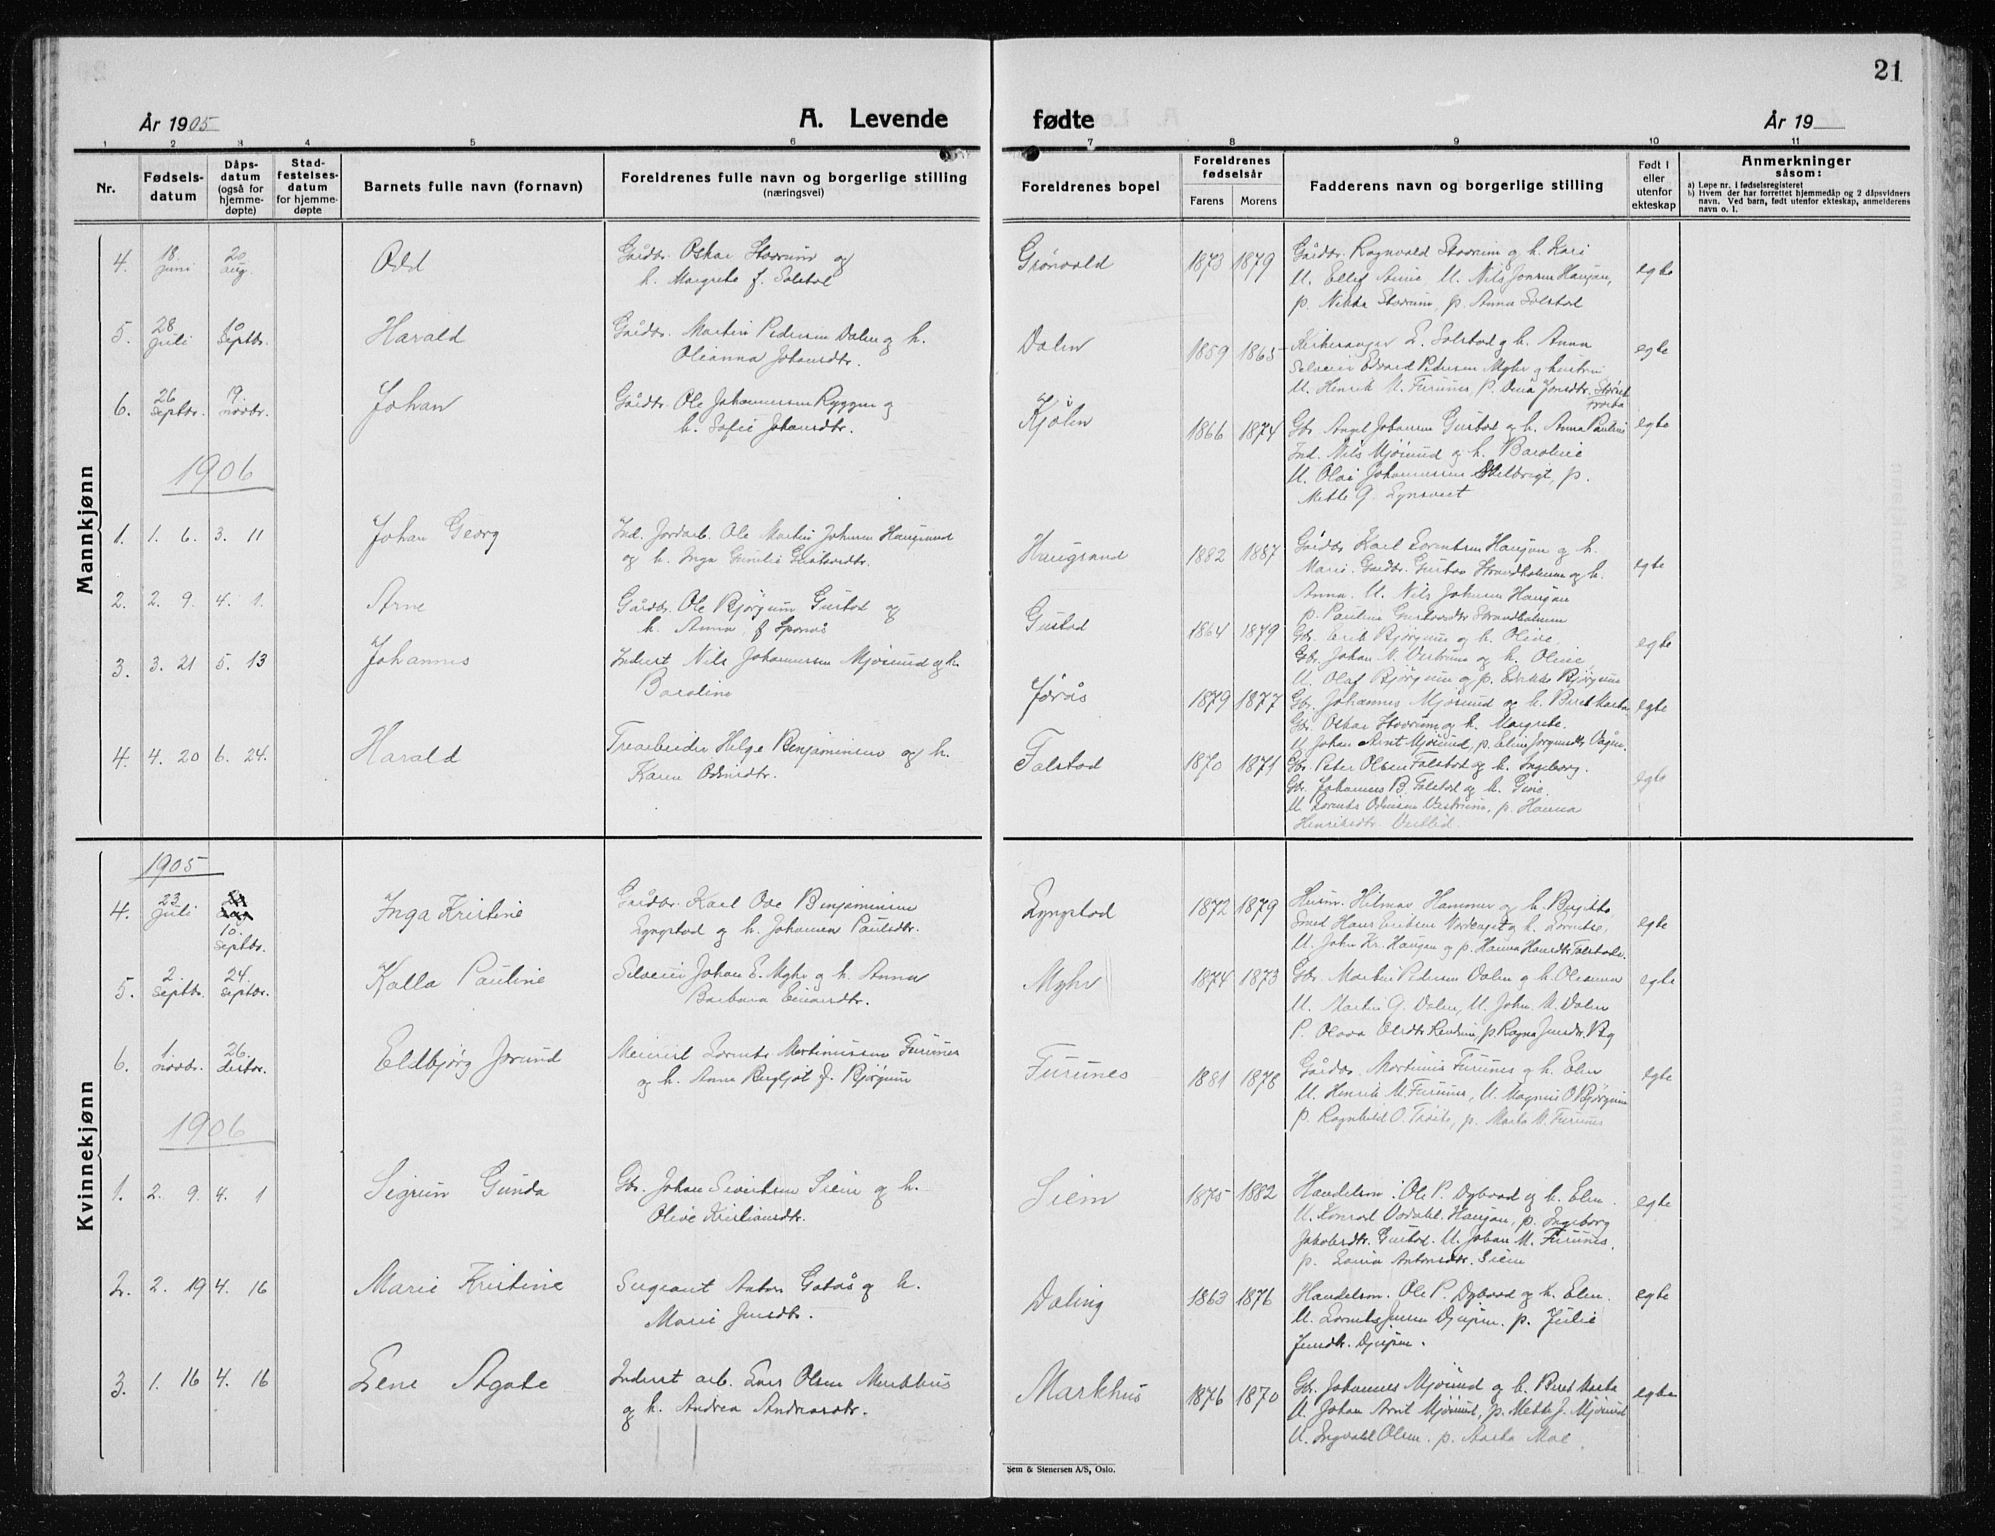 21
År 1905 A. Levende
fødte År 19
1 2 3 4 5 6
7 8 9 10 11
Nr. Fødselsdatum Dåpsdatum (også for hjemmedøpte) Stadfestelsesdatum for hjemmedøpte Barnets fulle navn (fornavn) Foreldrenes fulle navn og borgerlige stilling (næringsvei)
Foreldrenes bopel Foreldrenes fødselsår Farens Morens Fadderens navn og borgerlige stilling Født i eller utenfor ekteskap Anmerkninger såsom:
a) Løpe nr. i fødselsregisteret
b) Hvem der har forrettet hjemmedåp og 2 dåpsvidners navn. Ved barn, født utenfor ekteskap, anmelderens navn o. l.
Mannkjønn
4. 18 juni 20 aug. Odd
Gårdbr. Oskar Stavrum og
h. Margrete f. Solstad
Grønvold 1873 1879
Gårdbr. Ragnvald Stavrum og h. Kari
U. Ellef Amie, U. Nils Jonsen Haugan,
p. Stavrum, p. Anna Solstad
egte
5. 28 juli 10 septbr. Harald
Gårdbr. Martin Pedersen Dalen og h.
Olianna Johansdtr.
Dalen 1859 1865
Kirkesanger L. Solstad og h. Anna
Selveier Edvard Pedersen Myhr og hustru
U. Henrik M. Furunes, P.
egte
6. 26 septbr. 19. novbr. Johan
Gårdbr. Ole Johannessen Ryggen og
h. Sofie Johansdtr.
Kjølen 1866 1874
Gbr. Johansen Gustad og h. Anna Pauline
Ind. Nils Mjøsund og h. Baroline
U. Olai Johannessen p.
Mette G.
egte
1906
1. 1. 6. 3. 11 Johan Georg
Ind. Jordarb. Ole Martin Johnsen Haugsand
og h. Inga Gustavsdtr.
Haugsand 1882 1887
Gårdbr. Karl Lorentsen Haugan og h.
Marie. Gårdbr. Gustav Strandholmen og h.
Anna. U. Nils Johnsen Haugan
p. Pauline Gustavsdtr. Strandholmen
egte
2. 2. 9. 4. 1. Arne
Gårdbr. Ole Bjørgum Gustad og
h. Anna f. Sponås
Gustad 1864 1879
Gbr. Erik Bjørgum og h. Olive,
Gbr. Johan N. Vestrum og h. Oline,
U. Olaf Bjørgum og p. Bjørgum
egte
3. 3. 21 5. 13 Johannes
Inderst Nils Johannessen Mjøsund og h.
Baroline
Jøraas 1879 1877
Gbr. Johannes Mjøsund og h. Beret Marta
Gbr. Oskar Stavrum og h. Margrete.
U. Johan Arnt Mjøsund, p. Eline
egte
4. 4. 20 6. 24. Harald
Træarbeider Helge Benjaminsen og h.
Karen Odinsdtr.
Falstad 1870 1871
Gbr. Peter Olsen Falstad og h. Ingeborg.
Gbr. Johannes B. Falstad og h. Gine.
U. Lorents Odinsen Vestrum, p. Hanna
Henriksdtr. Vestlid.
egte
Kvinnekjønn
1905
4. 23 juli 10. septbr. Inga Kristine
Gårdbr. Karl Ove Benjaminsen
Lyngstad og h. Johanna Paulsdtr.
Lyngstad 1872 1879
Husm. Hilmar Hammer og h. Birgitte,
Smed Hans Eriksen og h.
U. John Kr. Haugan og p. Hanna Hansdtr. Falstad.
egte
5. 2. septbr. 24. septbr. Kalla Pauline
Selveier Johan E. Myhr og h. Anna
Barbara Einardtr.
Myhr 1874 1873
Gbr. Martin Pedersen Dalen og h. Olianna
U. Martin G. Dalen, U. John M. Dalen
P. Olava p. Ragna
egte
6. 1. novbr. 26. Eldbjørg Jorund
Meierist Lorents Martinussen Furunes
og h. Anna Bergljot f. Bjørgum
Furunes 1881 1878
Gårdbr. Martinus Furunes og h. Elen
U. Henrik M. Furunes, U. Magnus O. Bjørgum
p. Ragnhild O. p. Marta M. Furunes
egte
1906
1. 2. 9. 4. 1 Sigrun Gunda
Gbr. Johan Sivertsen Siem og h.
Olive Kristiansdtr.
Siem 1875 1882
Handelsm. Ole P. Dybvad og h. Elen.
U. Konrad Haugan, p. Ingeborg
Jakobsdtr. Gustad. U. Johan M. Furunes.
p. Antonsdtr. Siem
egte
2. 2. 19 4. 16 Marie Kristine
Sergeant Anton og h.
Marie Jensdtr.
Daling 1863 1876
Handelsm. Ole P. Dybvad og h. Elen.
U. Lorents Jensen Djupen. p. Julie
Jensdtr. Djupen.
egte
3. 1. 16 4. 16 Lene Agate
Inderst arb. Olsen Markhus
og h. Andrea Andreasdtr.
Markhus 1876 1870
Gbr. Johannes Mjøsund og h. Beret Marta
U. Johan Arnt Mjøsund, p. Mette J. Mjøsund
U. Ingvald Olsen. p. Moe.
egte
Sem & Stenersen A/S, Oslo.